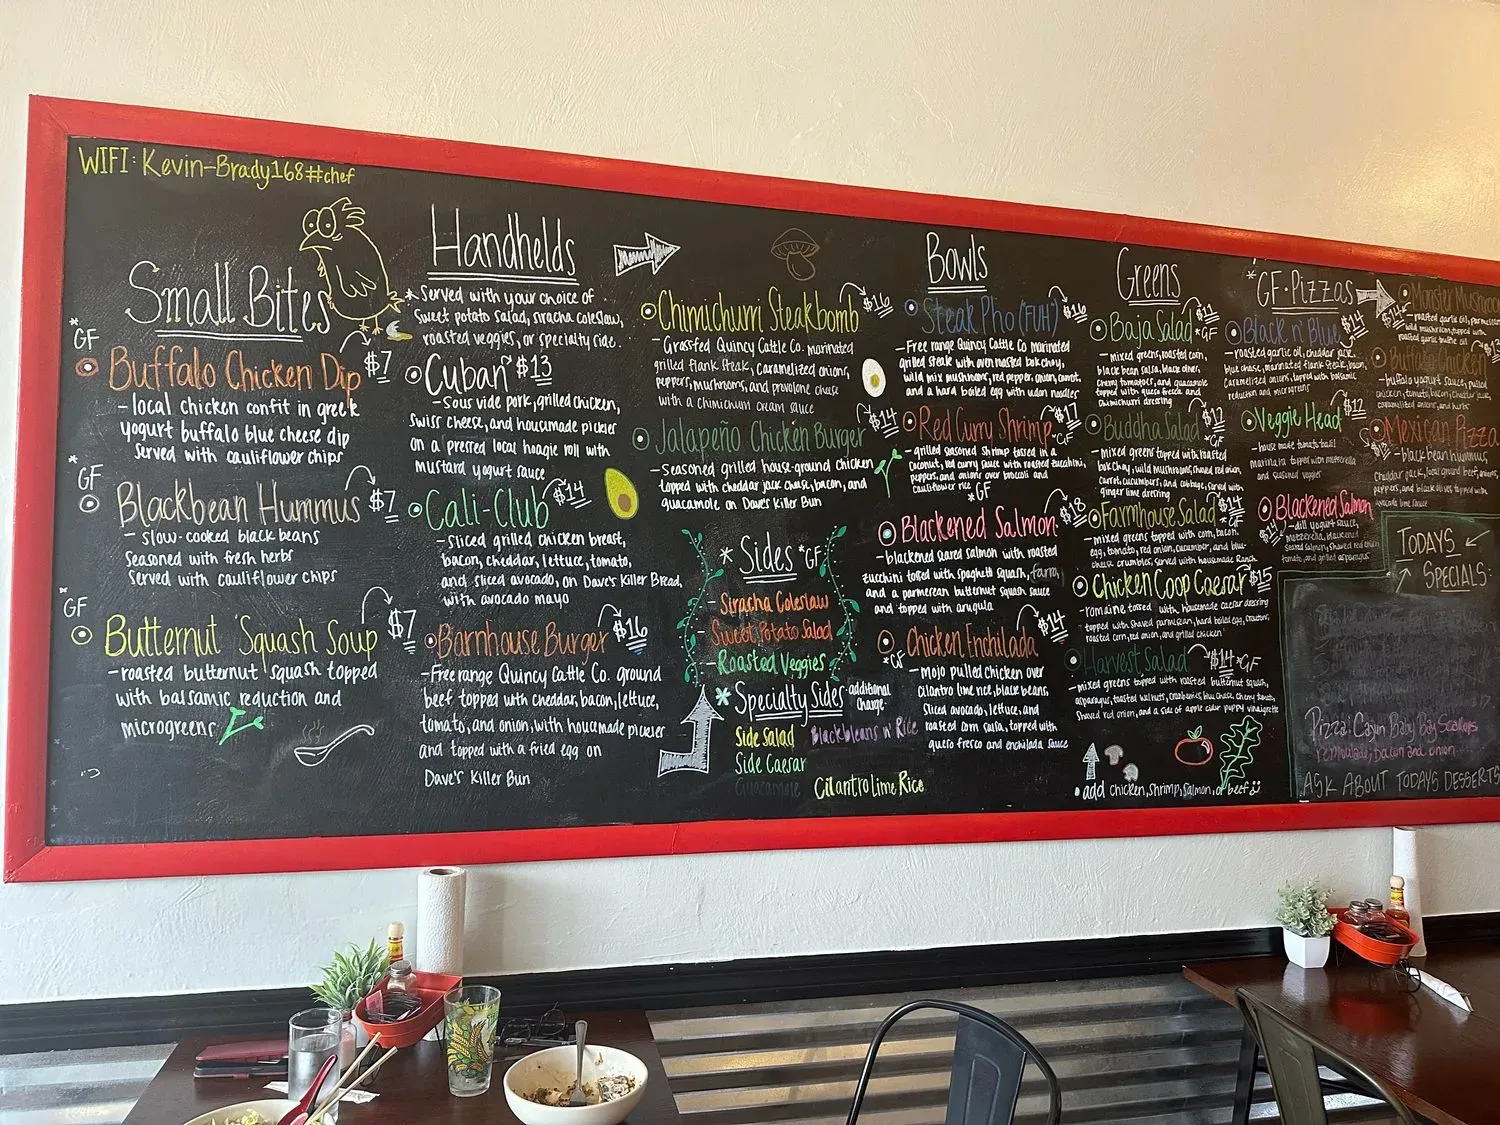 WIFI: Kevin-Brady168#chef
Small Bites
*GF
Buffalo Chicken Dip $7
- local chicken confit in greek
yogurt buffalo blue cheese dip
served with cauliflower chips
*GF
Blackbean Hummus $7
- slow-cooked black beans
seasoned with fresh herbs
served with cauliflower chips
*GF
Butternut Squash Soup $7
- roasted butternut squash topped
with balsamic reduction and
microgreens
Handhelds
* Served with your choice of
sweet potato salad, siracha coleslaw,
roasted veggies, or specialty side.
Cuban $13
- Sous vide pork, grilled chicken,
swiss cheese, and housemade pickles
on a pressed local hoagie roll with
mustard yogurt sauce
Cali-Club $14
- sliced grilled chicken breast,
bacon, cheddar, lettuce, tomato,
and sliced avocado, on Dave's Killer Bread,
with avocado mayo
Barnhouse Burger $16
- Free range Quincy Cattle Co. ground
beef topped with cheddar, bacon, lettuce,
tomato, and onion, with housemade pickles
and topped with a fried egg on
Dave's Killer Bun
Chimichurri Steakbomb $16
- Grassfed Quincy Cattle Co. marinated
grilled flank steak, caramelized onions,
peppers, mushrooms, and provolone cheese
with a chimichurri cream sauce
Jalapeño Chicken Burger $14
- seasoned grilled house-ground chicken
topped with cheddar jack cheese, bacon, and
guacamole on Daves Killer Bun
* Sides *GF
- Siracha Coleslaw
- Sweet Potato Salad
- Roasted Veggies
* Specialty Sides additional
charge
Side Salad Blackbeans n' Rice
Side Caesar
Guacamole Cilantro Lime Rice
Bowls
Steak Pho (FUH) $16
- Free range Quincy Cattle Co marinated
grilled steak with oven roasted bok choy,
wild mix mushrooms, red pepper, onion, carrot,
and a hard boiled egg with udon noodles
Red Curry Shrimp $17
*GF
- grilled seasoned shrimp tossed in a
coconut, red curry sauce with roasted zucchini,
peppers, and onions over broccoli and
cauliflower rice *GF
Blackened Salmon $18
- blackened seared salmon with roasted
zucchini tossed with spaghetti squash,
and a parmesean butternut squash sauce
and topped with arugula
Chicken Enchilada $14
*GF
- mojo pulled chicken over
cilantro lime rice, black beans,
sliced avocado, lettuce, and
roasted corn salsa, topped with
queso fresco and enchilada sauce
Greens
Baja Salad *GF
- mixed greens, roasted corn,
black bean salsa, black olives,
cherry tomatoes, and guacamole
topped with queso fresco and
chimichurri dressing
Buddha Salad $12
*GF
- mixed greens topped with roasted
bok choy, wild mushrooms, shaved red onion,
carrot, cucumbers, and cabbage, served with
ginger lime dressing
Farmhouse Salad $14
*GF
- mixed greens topped with corn, bacon,
egg, tomato, red onion, cucumber, and blue
cheese crumbles, served with housemade Ranch
Chicken Coop Caesar $15
- romaine tossed with housemade caesar dressing
topped with shaved parmesan, hard boiled egg, croutons,
roasted corn, red onion, and grilled chicken
Harvest Salad $14 *GF
- mixed greens topped with roasted butternut squash,
asparagus, toasted walnuts, cranberries, blue cheese, cherry tomato,
shaved red onion, and a side of apple cider puppy vinaigrette
• add chicken, shrimp, salmon, or beef
*GF · Pizzas
Black n' Blue $14
- roasted garlic oil, cheddar jack,
blue cheese, marinated flank steak, bacon,
caramelized onions, topped with balsamic
reduction and microgreens
Veggie Head $12
- house made tomato basil
marinara topped with mozzarella
and seasoned veggies
Blackened Salmon
$14
- dill yogurt sauce,
mozzarella, blackened
seared salmon, shaved red onion
and grilled asparagus
Monster Mushroom
$14
- roasted garlic oil, parmesan
wild mushrooms, topped with
roasted garlic truffle oil
Buffalo Chicken
- buffalo yogurt sauce, pulled
chicken, tomato, bacon, cheddar jack,
caramelized onions, and herbs
Mexican Pizza
- blackbean hummus,
cheddar jack, local ground beef, onions,
peppers, and black olives topped with
avocado lime sauce
TODAYS
SPECIALS:
Pizza: Cajun Baby Bay Scallops
remoulade, bacon and onion
ASK ABOUT TODAYS DESSERTS